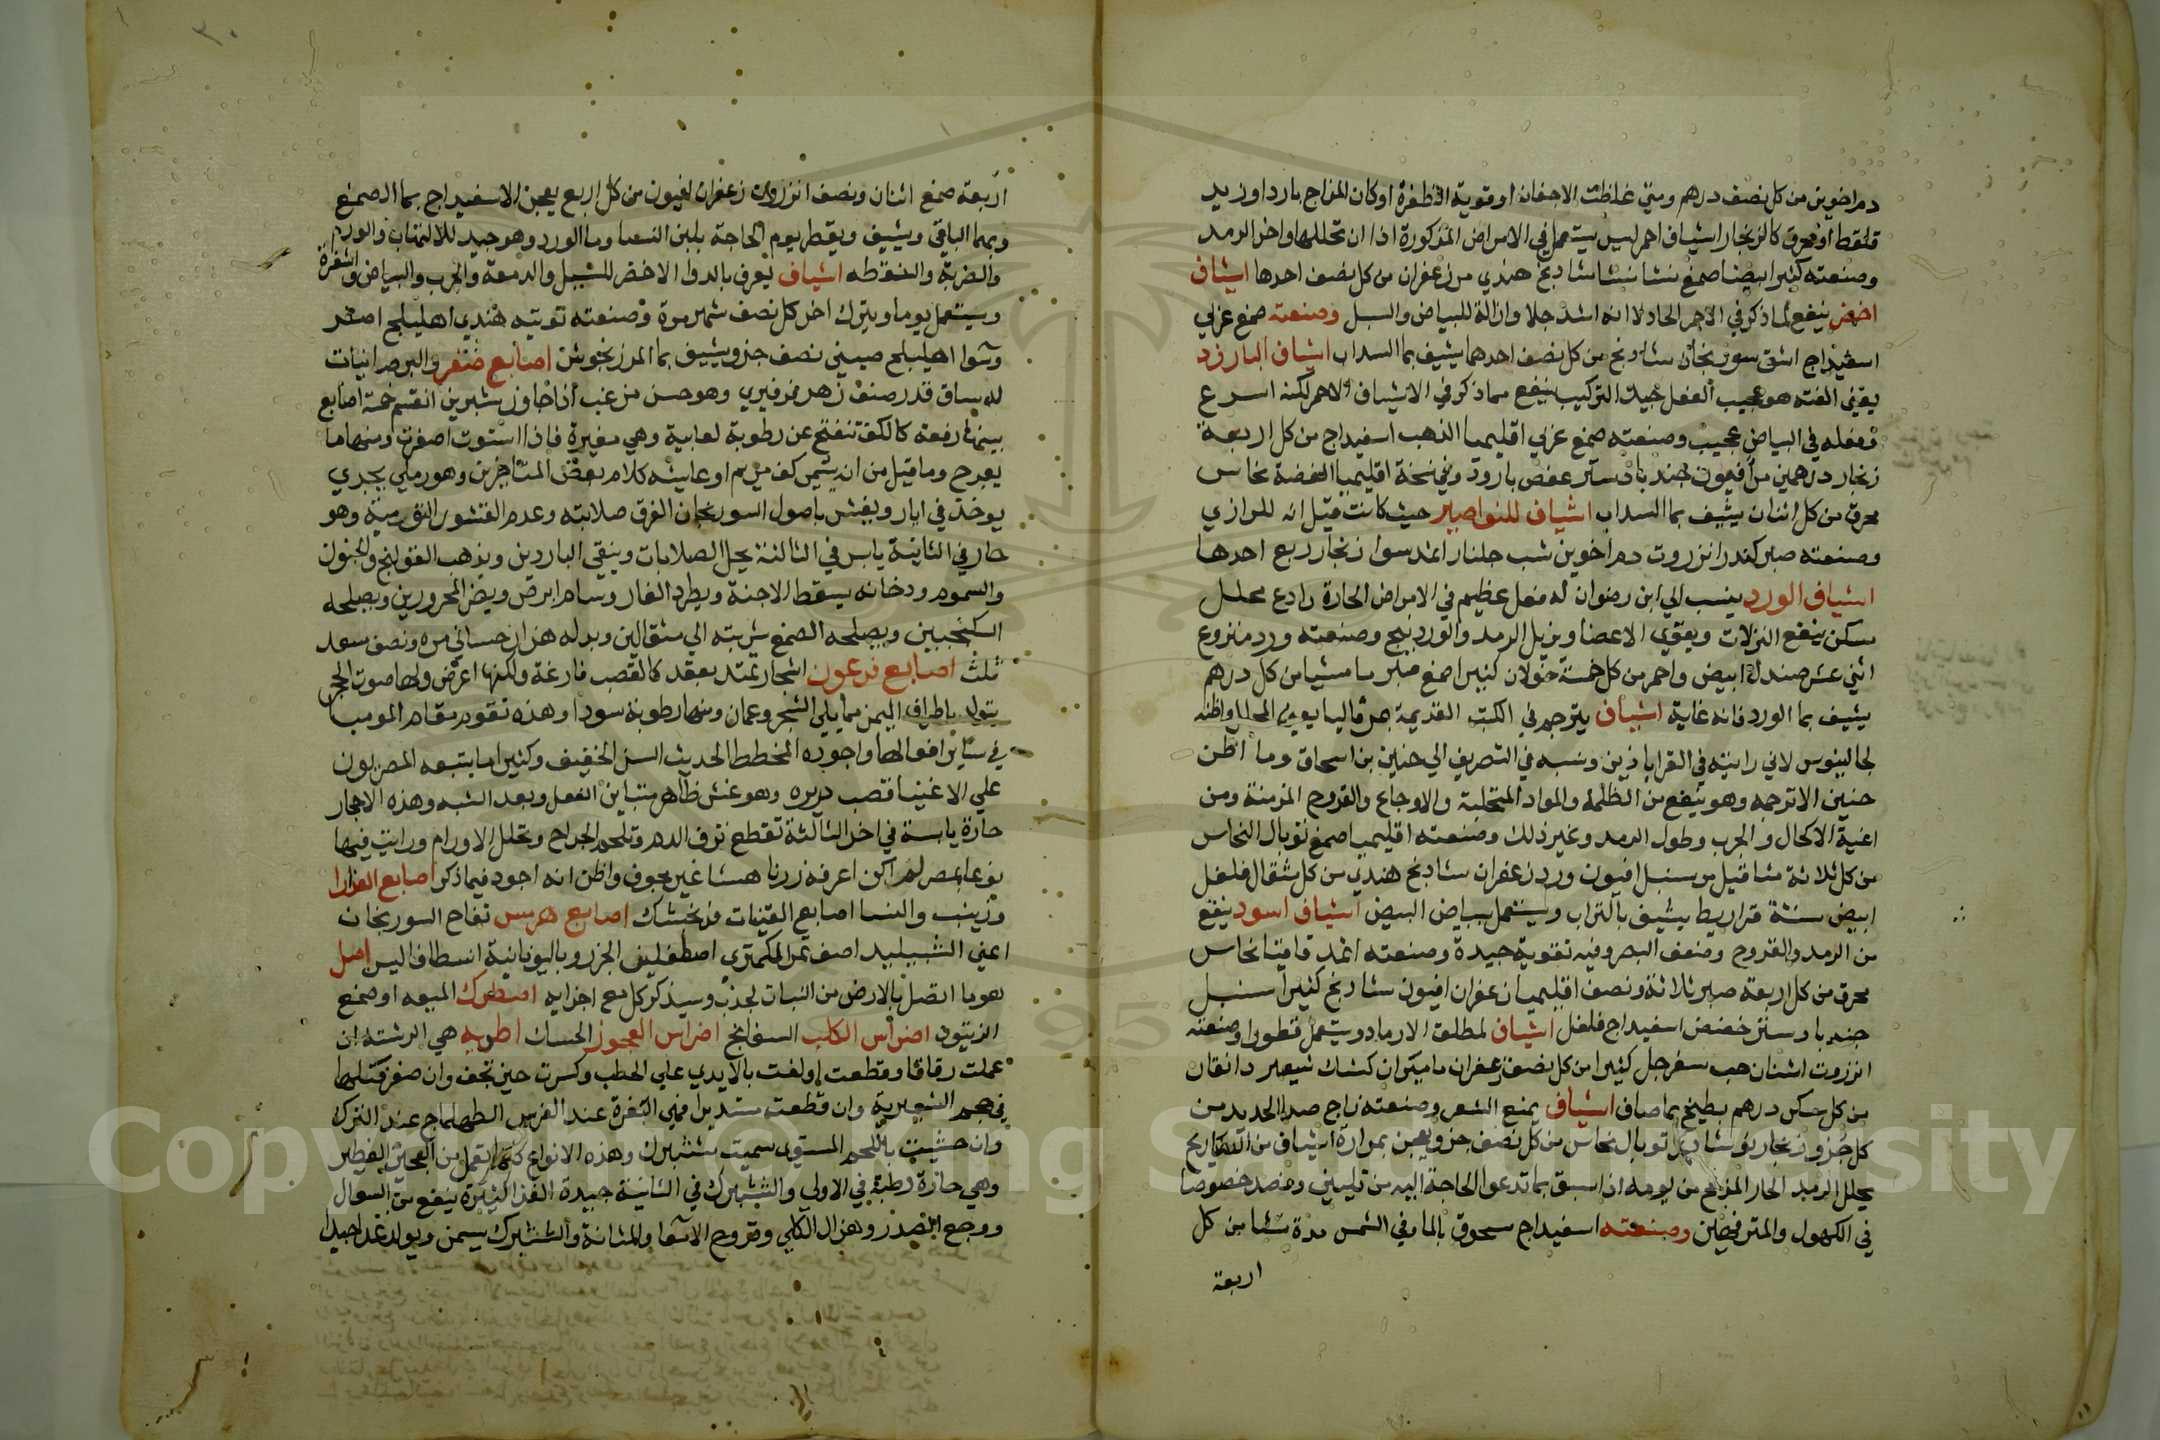 دم اخوين من كل نصف درهم ومتي غلظت الاجفان او قويت الظفرة او كان المزاج باردا وزيد
قلقطار محرق كالزنجار اشياف احمر لين يستعمل في الامراض المذكورة اذا ان تحللها واخر الرمد
وصنعته كثيرا بيضا صمغ نشا شادنج هندي مر زعفران من كل نصف احدها اشياف
اخضر ينفع لما ذكر في الاحمر الحاد لانه اشد جلا وازالة للبياض والسبل وصنعته صمغ عربي
اسفيداج اشق سورنجان شادنج من كل نصف احدهما يشيف بما السداب اشياف البارزد
يعني القنه هو عجيب الفعل جيد التركيب ينفع مما ذكر في الاشياف الاحمر لكنه اسرع
وفعله في البياض عجيب وصنعته صمغ عربي اقليميا الذهب اسفيداج من كل اربعة
زنجار درهمين مر افيون جند بادستر عفص بارود وفي نسخة اقليميا الفضة نحاس
محرق من كل اثنان يشيف بما السداب اشياف للنواصير حيث كانت قيل انه للرازي
وصنعته صبر كندر انزروت دم اخوين شب جلنار اثمد سوا زنجار ربع احدها
اشياف الورد ينسب الي ابن رضوان له فعل عظيم في الامراض الحارة رادع محلل
مسكن ينفع النزلات ويقوي الاعضا ويزيل الرمد والوردينج وصنعته ورد منزوع
اثني عشر صندل ابيض واحمر من كل خمسة خولان كثيرا صمغ صبر ماميشا من كل درهم
يشيف بما الورد فانه غاية اشياف يترجم في الكتب القديمة المحلل واظنه
لجالينوس لاني رايته في القراباذين ونسبه في التصريف الي حنين بن اسحاق وما اظن
حنين الا ترجمه وهو ينفع من الظلمة والمواد المتحلبة والاوجاع والقروح المزمنة ومن
اغنية الاكحال والجرب وطول الرمد وغير ذلك وصنعته اقليميا صمغ توبال النحاس
من كل ثلاثة مثاقيل مر سنبل افيون ورد زعفران شادنج هندي من كل مثقال فلفل
ابيض ستة قراريط يشيف بالتراب ويستعمل ببياض البيض اشياف اسود ينفع
من الرمد والقروح وضعف البصر وفيه تقوية جيدة وصنعته اثمد قاقيا نحاس
محرق من كل اربعة صبر ثلاثة ونصف اقليميا زعفران افيون شادنج كثيرا سنبل
جند بادستر حضض اسفيداج فلفل اشياف لمطلق الارماد ويستعمل قطورا وصنعته
انزروت اثنان حب سفرجل كثيرا من كل نصف زعفران ماميران كشك شعير دانقان
من كل سكر درهم يطبخ بما صاف اشياف يمنع الشعر وصنعته زاج صدا الحديد من
كل جزو زنجار نوشادر توبال نحاس من كل نصف جزو يعجن بمرارة اشياف من
يحلل الرمد الحار المزاج من يومه اذا سبق بما تدعوا الحاجة اليه من تليين وفصد خصوصا
في الكهول والمترفهين وصنعته اسفيداج مسحوق بالما وفي الشمس مدة نشا من كل
اربعة
اربعة صمغ اثنان ونصف انزروت زعفران افيون من كل اربع يعجن الاسفيداج بما الصمغ
وبهما الباقي ويشيف ويقطر يوم الحاجة بلبن النسا وما الورد وهو جيد للالتهاب والورم
والضربة والنقطه اشياف يعرف بالدوا الاخضر للسبل والدمعة والجرب والبياض والشعرة
ويستعمل يوما ويترك اخر كل نصف شهر مرة وصنعته توتيه هندي اهليلج اصفر
وسوا اهليلج صيني نصف جزو يشيف بما المرزنجوش اصابع صفر والبوصر انبات
له ساق قدر صنف زهر فرفيري وهو حسن مزغب اذا جاوز شبرين انقسم خمسة اصابع
بينها رقعة كالكف تنفتح عن رطوبة لعابية وهي صغيرة فاذا استوت اصفرت ومنها ما
يعوج وما قيل من انه يسمي كف مريم او عايشه كلام بعض المتاخرين وهو رملي بجدي
يوخذ في ايار ويغش باصول السورنجان الفرق صلابته وعدم القشور الثومية وهو
حار في الثانية يابس في الثالثة يحل الصلابات وينقي الباردين ويذهب القولنج والجنون
والسموم ودخانه يسقط الاجنة ويطرد الفار وسام ابرص ويضر المحرورين ويصلحه
السكنجبين ويصلحه الصمغ شربته الي مثقالين وبدله هزار جسان مره ونصف سعد
ثلث اصابع فرعون احجار تمتد بعقد كالقصب فارغة ولكنها اعرض ولها صوت الحجر
يتولد باطراف اليمن مما يلي الشجر وعمان ومنها رطوبة سودا وهذه تقوم مقام الموميا
في ساير افعالها واجوده المخطط الحديث الرزن الخفيف وكثيرا ما يتبعه المصريون
علي الاغنيا قصب دريره وهو غش ظاهر متباين الفعل وبعد الشبه وهذه الاحجار
حارة يابسة في اخر الثالثة تقطع نزف الدم وتلحم الجراح وتحلل الاورام ورايت فيها
نوعا بمصر لم اكن اعرفه زرنا هشا غير مجوف واظن انه اجود فيما ذكر اصابع العذارا
وزينب والنسا اصابع القينات فرنجمشك اصابع هرمس تفاح السورنجان
اعني الشنبليد اصف ثمر الكمثري اصطفلين الجزر وباليونانية انسطافاليس اصل
هو ما اتصل بالارض من النبات لجذب وسيذكر كل مع اجزايه اصطرك الميعه او صمغ
الزيتون اضراس الكلب البسفايج اضراس العجوز الحسك اطريه هي الرشته ان
عملت رقاقا وقطعت ولفت بالايدي علي الحطب وكسرت حين تجف وان صغر فتلها
في حجم الشعيرية وان قطعت مستديرا فهي البغرة عند الفرس الططماج عند الترك
وان حشيت باللحم المستوي سميت ششبرك وهذه الانواع كلها تعمل من العجين الفطير
وهي حارة رطبة في الاولي والششبرك في الثانية جيدة الغذا كثيرة ينفع من السعال
ووجع الصدر وهزال الكلي وقروح الامعا والمثانة والططشبرك يسمن ويولد غدا جيدا